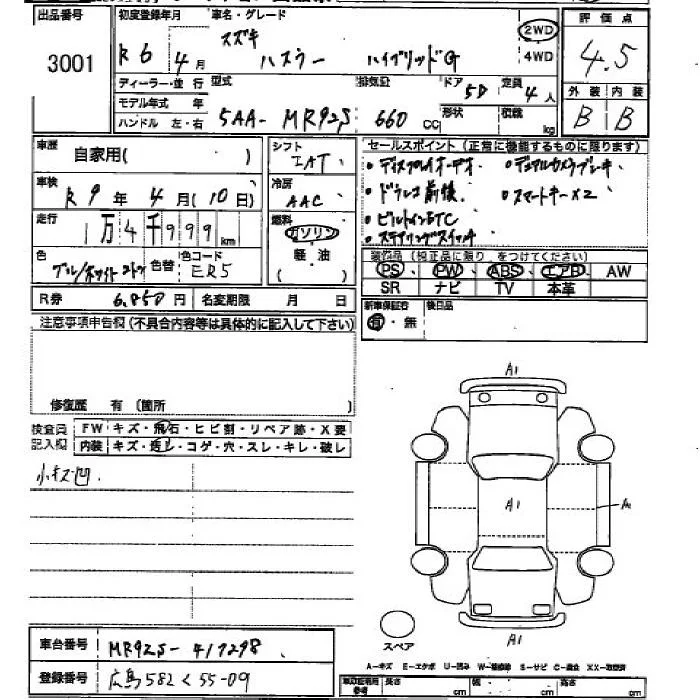 出品番号 3001
初度登録年月 R6年4月
車名・グレード スズキ ハスラー ハイブリッドG
2WD
4WD
評価点 4.5
外装 内装
B B
ディーラー・並行
モデル年式 年
ハンドル 左・右
型式 5AA-MR92S
排気量 660 cc
ドア 5D
形状
定員 4人
積載 kg
車歴 自家用( )
シフト IAT
セールスポイント(正常に機能するものに限ります)
・ディスプレイオーディオ ・デュアルカメラブレーキ
・ドラレコ前後 ・スマートキーX2
・ビルトインETC
・ステアリングスイッチ
車検 R9年4月(10日)
冷房 AAC
走行 1万4千999km
燃料 ガソリン
軽・油
( )
色 ブルー/ホワイト2トーン 色替 色コード ER5
装備品(純正品に限り をつけてください)
PS PW ABS エアB AW
SR ナビ TV 本革
R券 6,850円 名変期限 月 日
新車保証書 有・無
後日品
注意事項申告欄(不具合内容等は具体的に記入して下さい)
修復歴 有(箇所 )
検査員記入欄
FW キズ・飛石・ヒビ割・リペア跡・X要
内装 キズ・汚し・コゲ・穴・スレ・キレ・破レ
小キズ凹
A1
A1
A1
A1
スペア
車台番号 MR92S-417298
登録番号 広島582く55-09
A-キズ E-エクボ U-凹み W-補修跡 S-サビ C-腐食 XX-交換済
長さ cm 幅 cm 高さ cm